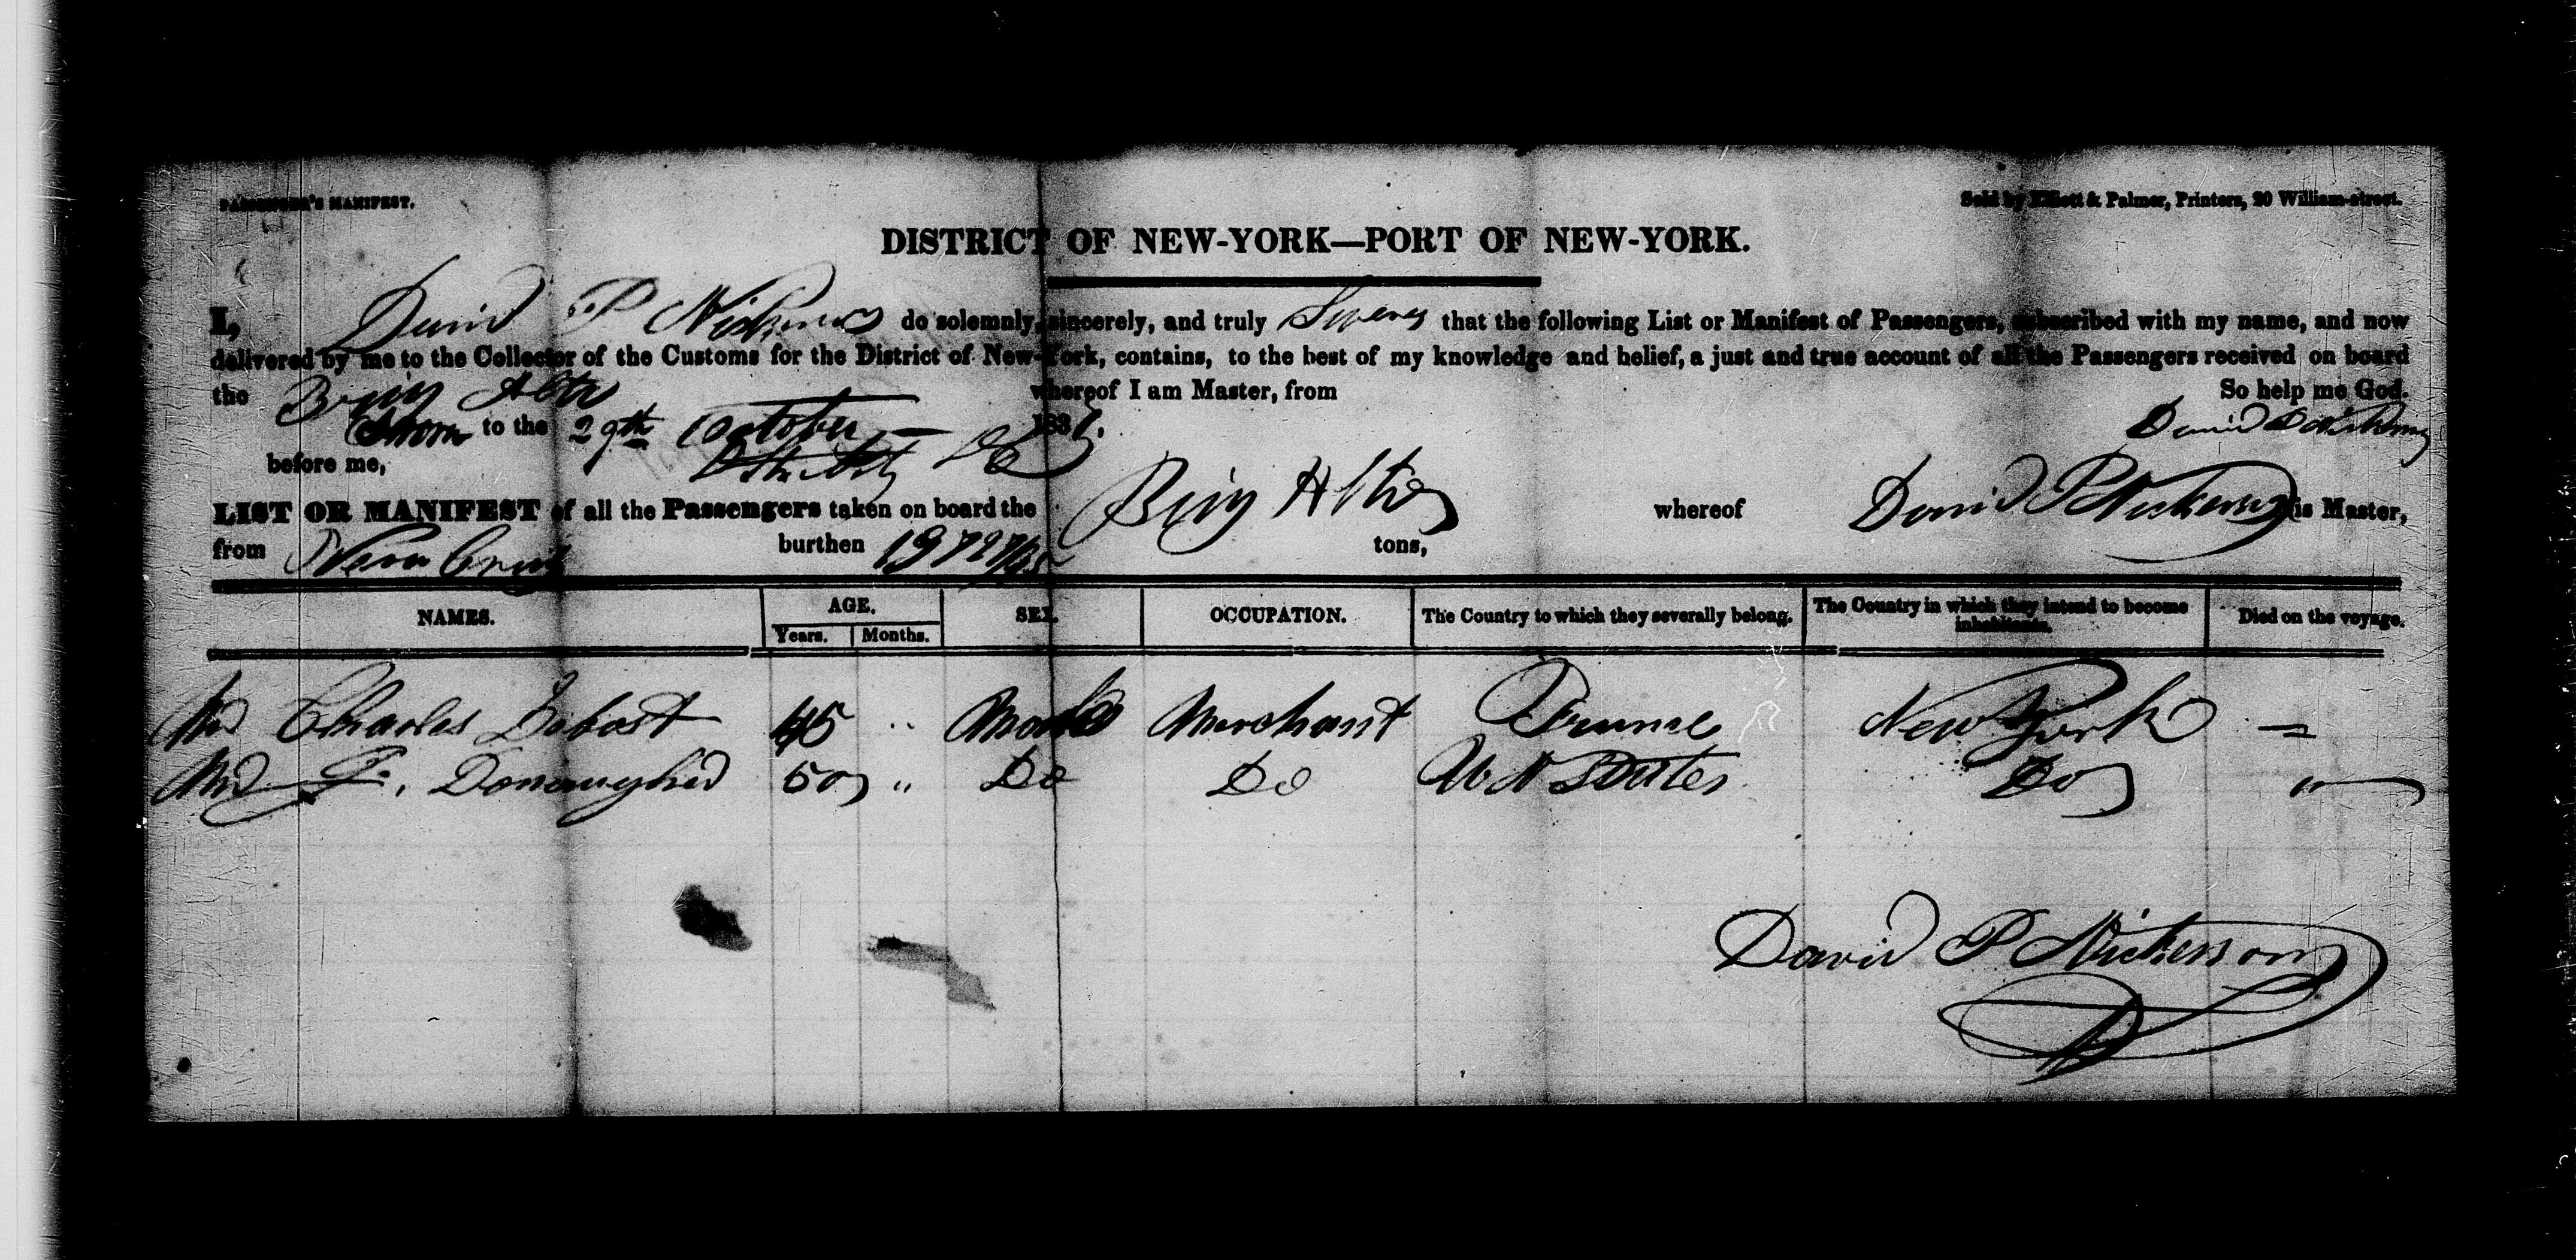 PASSENGER'S MANIFEST.
Sold by Elliott & Palmer, Printers, 20 William-street.
DISTRICT OF NEW-YORK—PORT OF NEW-YORK.
I, David P Nickerson do solemnly, sincerely, and truly Swear that the following List or Manifest of Passengers, subscribed with my name, and now
delivered by me to the Collector of the Customs for the District of New-York, contains, to the best of my knowledge and belief, a just and true account of all the Passengers received on board
the Brig whereof I am Master, from So help me God.
Sworn to the 29th October 183
David P Nickerson
before me,
LIST OR MANIFEST of all the Passengers taken on board the Brig whereof David P Nickerson is Master,
from Vera Cruz burthen 197 tons,
NAMES. AGE. SEX. OCCUPATION. The Country to which they severally belong. The Country in which they intend to become inhabitants. Died on the voyage.
Years. Months.
Mr Charles Dobost 45 " Male Merchant France New York –
Mr P. Donaughed 50 " Do Do Un States Do "
David P Nickerson